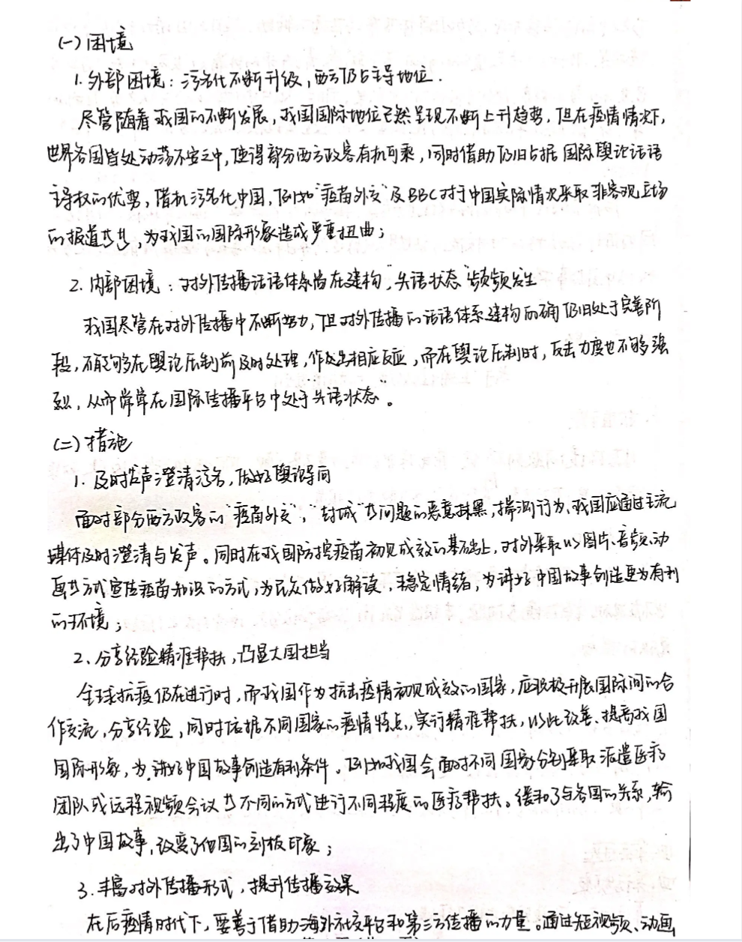 (一) 困境
1. 外部困境：污名化不断升级，西方仍占主导地位.
尽管随着我国的不断发展，我国国际地位已然呈现不断上升趋势，但在疫情情况下，
世界各国皆处动荡不安之中，使得部分西方政客有机可乘，同时借助仍旧占据国际舆论话语
主导权的优势，借机污名化中国，例如"疫苗外交"及BBC对于中国实际情况采取非客观立场
的报道等等，为我国的国际形象造成严重扭曲；
2. 内部困境：对外传播话语体系尚在建构，"失语状态"频频发生
我国尽管在对外传播中不断努力，但对外传播的话语体系建构而确仍旧处于完善阶
段，不能够在舆论压制前及时处理，作出相应反应，而在舆论压制时，反击力度也不够强
烈，从而常常在国际传播平台中处于"失语状态"。
(二) 措施
1. 及时发声澄清污名，做好舆论导向
面对部分西方政客的"疫苗外交"，"封城"等问题的恶意抹黑，揣测行为，我国应通过主流
媒体及时澄清与发声。同时在我国防控疫苗初见成效的基础上，对外采取以图片、音频、动
画等方式宣传疫苗知识的方式，为民众做好解读，稳定情绪，为讲好中国故事创造更为有利
的环境；
2. 分享经验精准帮扶，凸显大国担当
全球抗疫仍在进行时，而我国作为抗击疫情初见成效的国家，应积极开展国际间的合
作交流，分享经验，同时依据不同国家的疫情特点，实行精准帮扶，以此改善、提高我国
国际形象，为讲好中国故事创造有利条件。例如我国会面对不同国家分别采取派遣医疗
团队或远程视频会议等不同的方式进行不同程度的医疗帮扶。缓和了与各国的关系，输
出了中国故事，改变了他国的刻板印象；
3. 丰富对外传播形式，提升传播效果
在后疫情时代下，要善于借助海外社交平台和第三方传播的力量。通过短视频、动画